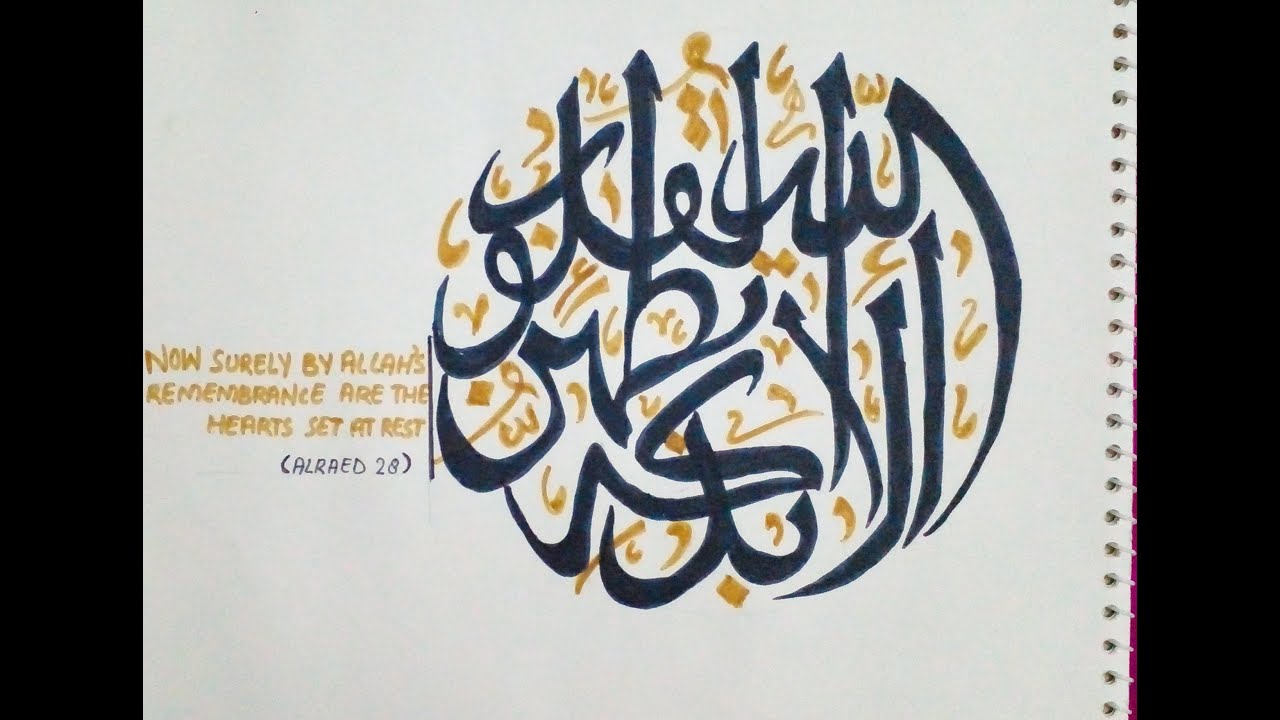 ألا بذكر الله تطمئن القلوب
NOW SURELY BY ALLAH'S
REMEMBRANCE ARE THE
HEARTS SET AT REST
(ALRAED 28)